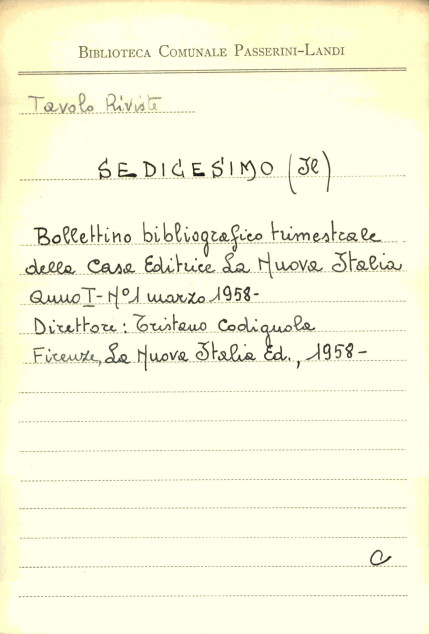 BIBLIOTECA COMUNALE PASSERINI-LANDI
Tavolo Riviste
SEDICESIMO (Il)
Bollettino bibliografico trimestrale
della Casa Editrice La Nuova Italia
Anno I - N°1 marzo 1958-
Direttore: Tristano Codignola
Firenze, La Nuova Italia Ed., 1958-
C